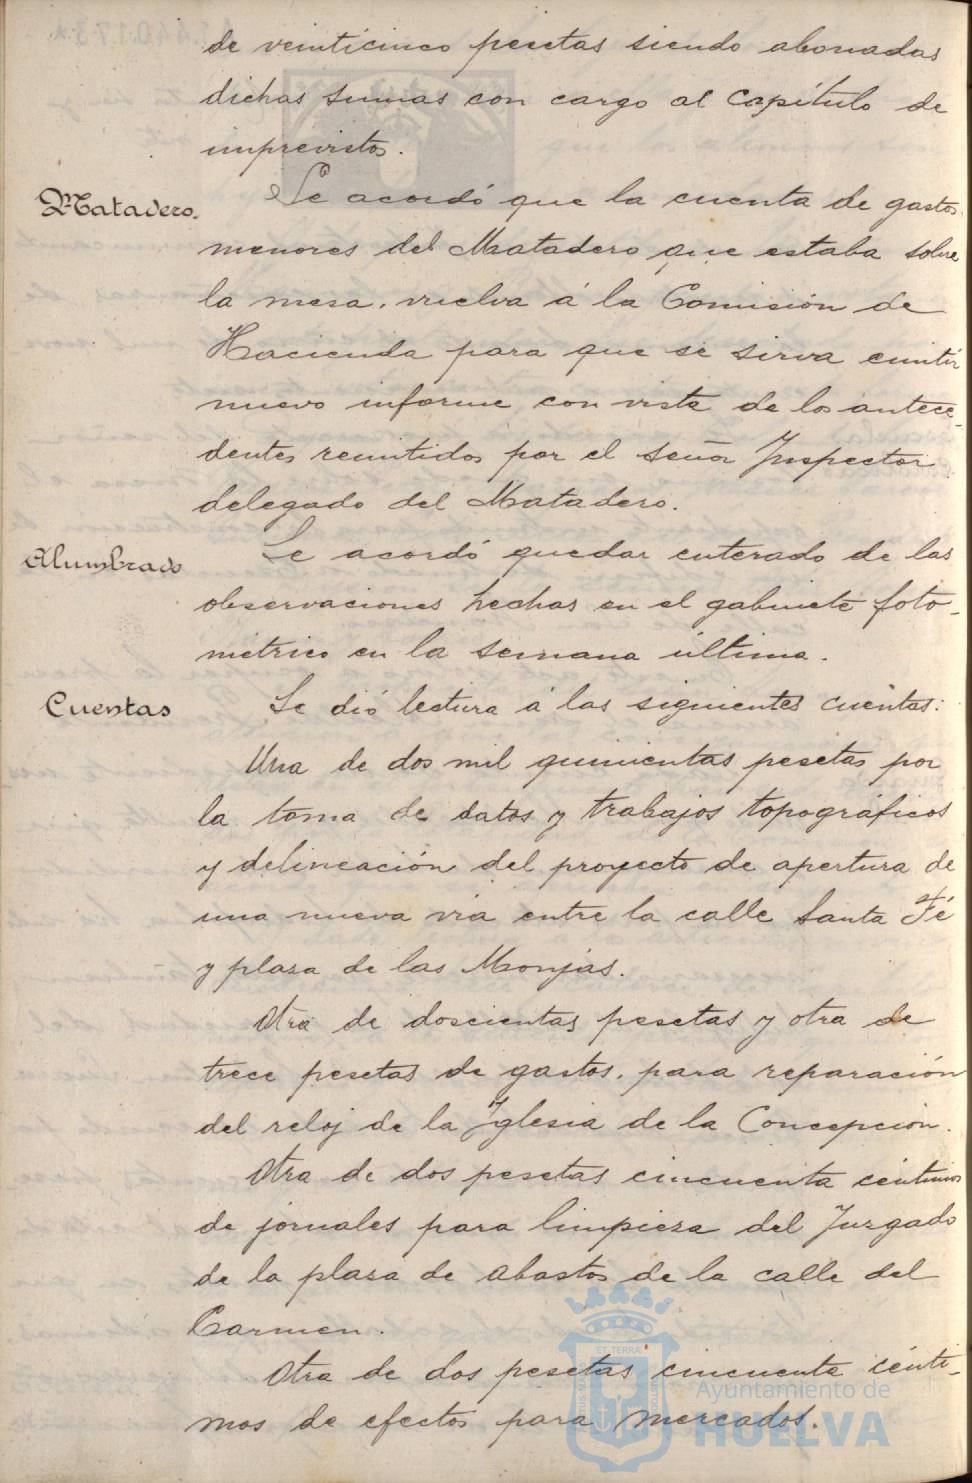 de veinticinco pesetas siendo abonadas
dichas sumas con cargo al Capítulo de
imprevistos.
Matadero.
Se acordó que la cuenta de gastos
menores del Matadero que estaba sobre
la mesa, vuelva á la Comisión de
Hacienda para que se sirva emitir
nuevo informe con vista de los antece-
dentes remitidos por el señor Inspector
delegado del Matadero.
Alumbrado
Se acordó quedar enterado de las
observaciones hechas en el gabinete foto-
métrico en la semana última.
Cuentas
Se dió lectura á las siguientes cuentas:
Una de dos mil quinientas pesetas por
la toma de datos y trabajos topográficos
y delineación del proyecto de apertura de
una nueva vía entre la calle Santa Fé
y plaza de las Monjas.
Otra de doscientas pesetas y otra de
trece pesetas de gastos, para reparación
del reloj de la Iglesia de la Concepción.
Otra de dos pesetas cincuenta céntimos
de jornales para limpieza del Juzgado
de la plaza de Abastos de la calle del
Carmen.
Otra de dos pesetas cincuenta cénti-
mos de efectos para mercados.
ET TERRA
Ayuntamiento de
HUELVA